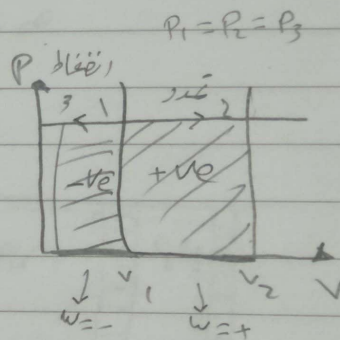 P₁ = P₂ = P₃
P انضغاط تمدد
3 1 2
-ve +ve
V₁ V₂ V
w = - w = +